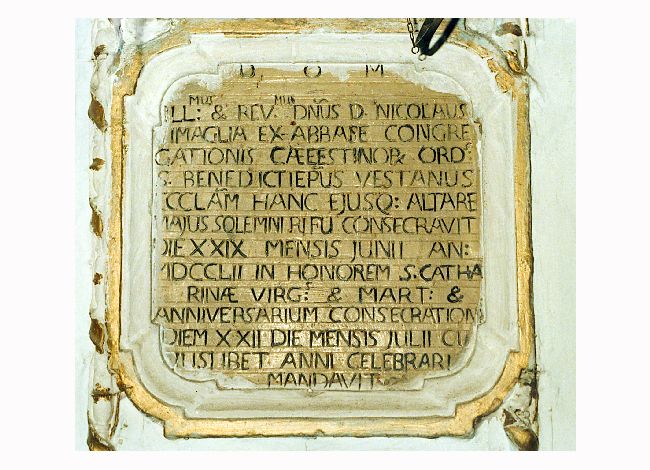 D O M
ILL:MUS & REV:MUS DÑUS D. NICOLAUS
IMAGLIA EX-ABBATE CONGRE
GATIONIS CÆLESTINOR ORD:S
S. BENEDICTI EPUS VESTANUS
ECCLAM HANC EJUSQ: ALTARE
MAJUS SOLEMNI RITU CONSECRAVIT
DIE XXIX MENSIS JUNII AN:
MDCCLII IN HONOREM S. CATHA
RINÆ VIRG:S & MART:S &
ANNIVERSARIUM CONSECRATION
DIEM XXII DIE MENSIS JULII CU
JUSLIBET ANNI CELEBRARI
MANDAVIT